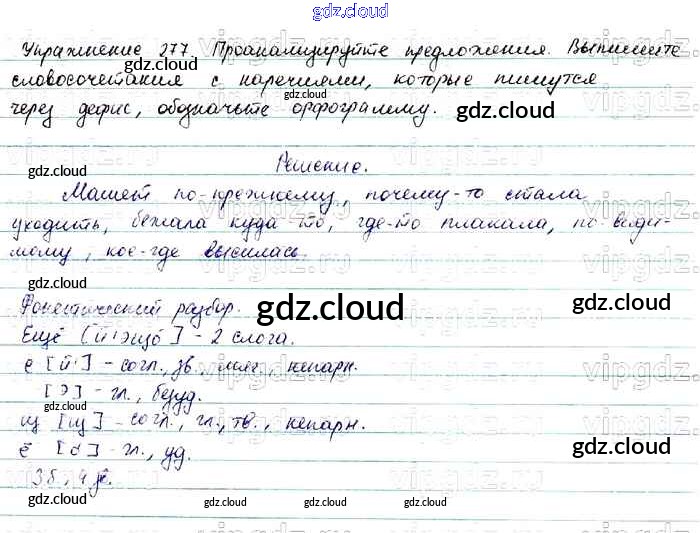 gdz.cloud
Упражнение 277. Проанализируйте предложения. Выпишите
gdz.cloud
словосочетания с наречиями, которые пишутся
gdz.cloud
через дефис, обозначьте орфограмму.
gdz.cloud
gdz.cloud
gdz.cloud
Решение.
gdz.cloud
Машет по-прежнему, почему-то стала
уходить, бежала куда-то, где-то плакала, по-види-
gdz.cloud
мому, кое-где высилась.
gdz.cloud
Фонетический разбор.
gdz.cloud
Ещё [й'эщо́] - 2 слога.
gdz.cloud
е [й'] - согл., зв., мяг., непарн.
[э] - гл., безуд.
gdz.cloud
щ [щ] - согл., гл., тв., непарн.
ё [о́] - гл., уд.
gdz.cloud
3 б., 4 з.
gdz.cloud
gdz.cloud
gdz.cloud
gdz.cloud
vipgdz.ru